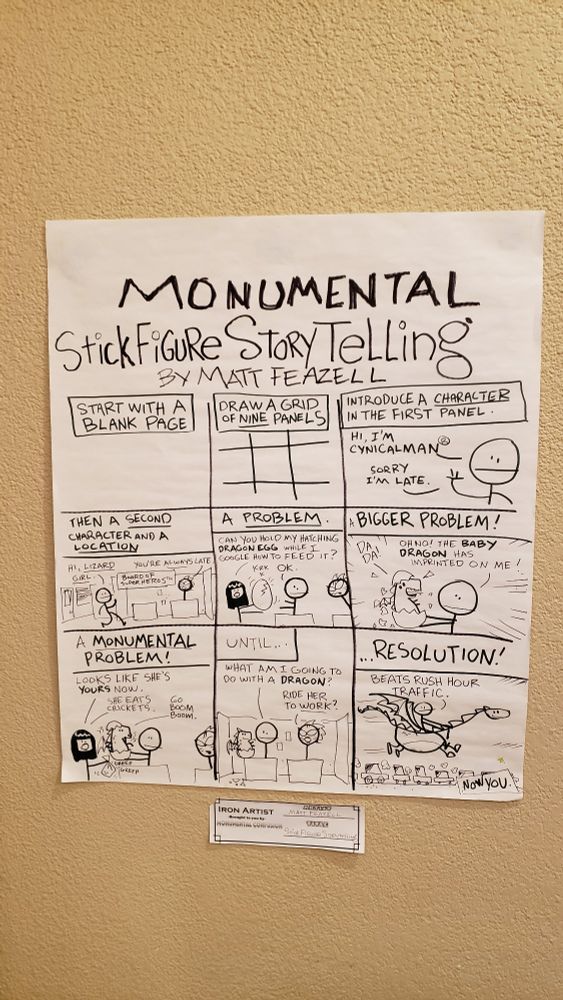 MONUMENTAL
Stick FiGURe StoRy Telling
BY MATT FEAZELL
START WITH A
BLANK PAGE
DRAW A GRID
OF NINE PANELS
INTRODUCE A CHARACTER
IN THE FIRST PANEL.
HI, I'M
CYNICALMAN®
SORRY
I'M LATE.
THEN A SECOND
CHARACTER AND A
LOCATION
HI, LIZARD
GIRL.
YOU'RE ALWAYS LATE
BOARD OF
SUPERHEROS
A PROBLEM.
CAN YOU HOLD MY HATCHING
DRAGON EGG WHILE I
GOOGLE HOW TO FEED IT?
KRK
OK.
A BIGGER PROBLEM!
DA
DA!
OH NO! THE BABY
DRAGON HAS
IMPRINTED ON ME!
A MONUMENTAL
PROBLEM!
LOOKS LIKE SHE'S
YOURS NOW.
SHE EATS
CRICKETS.
GO
BOOM
BOOM.
CREEP
UNTIL...
WHAT AM I GOING TO
DO WITH A DRAGON?
RIDE HER
TO WORK?
...RESOLUTION!
BEATS RUSH HOUR
TRAFFIC.
NOW YOU.
IRON ARTIST
Brought to you by
MATT FEAZELL